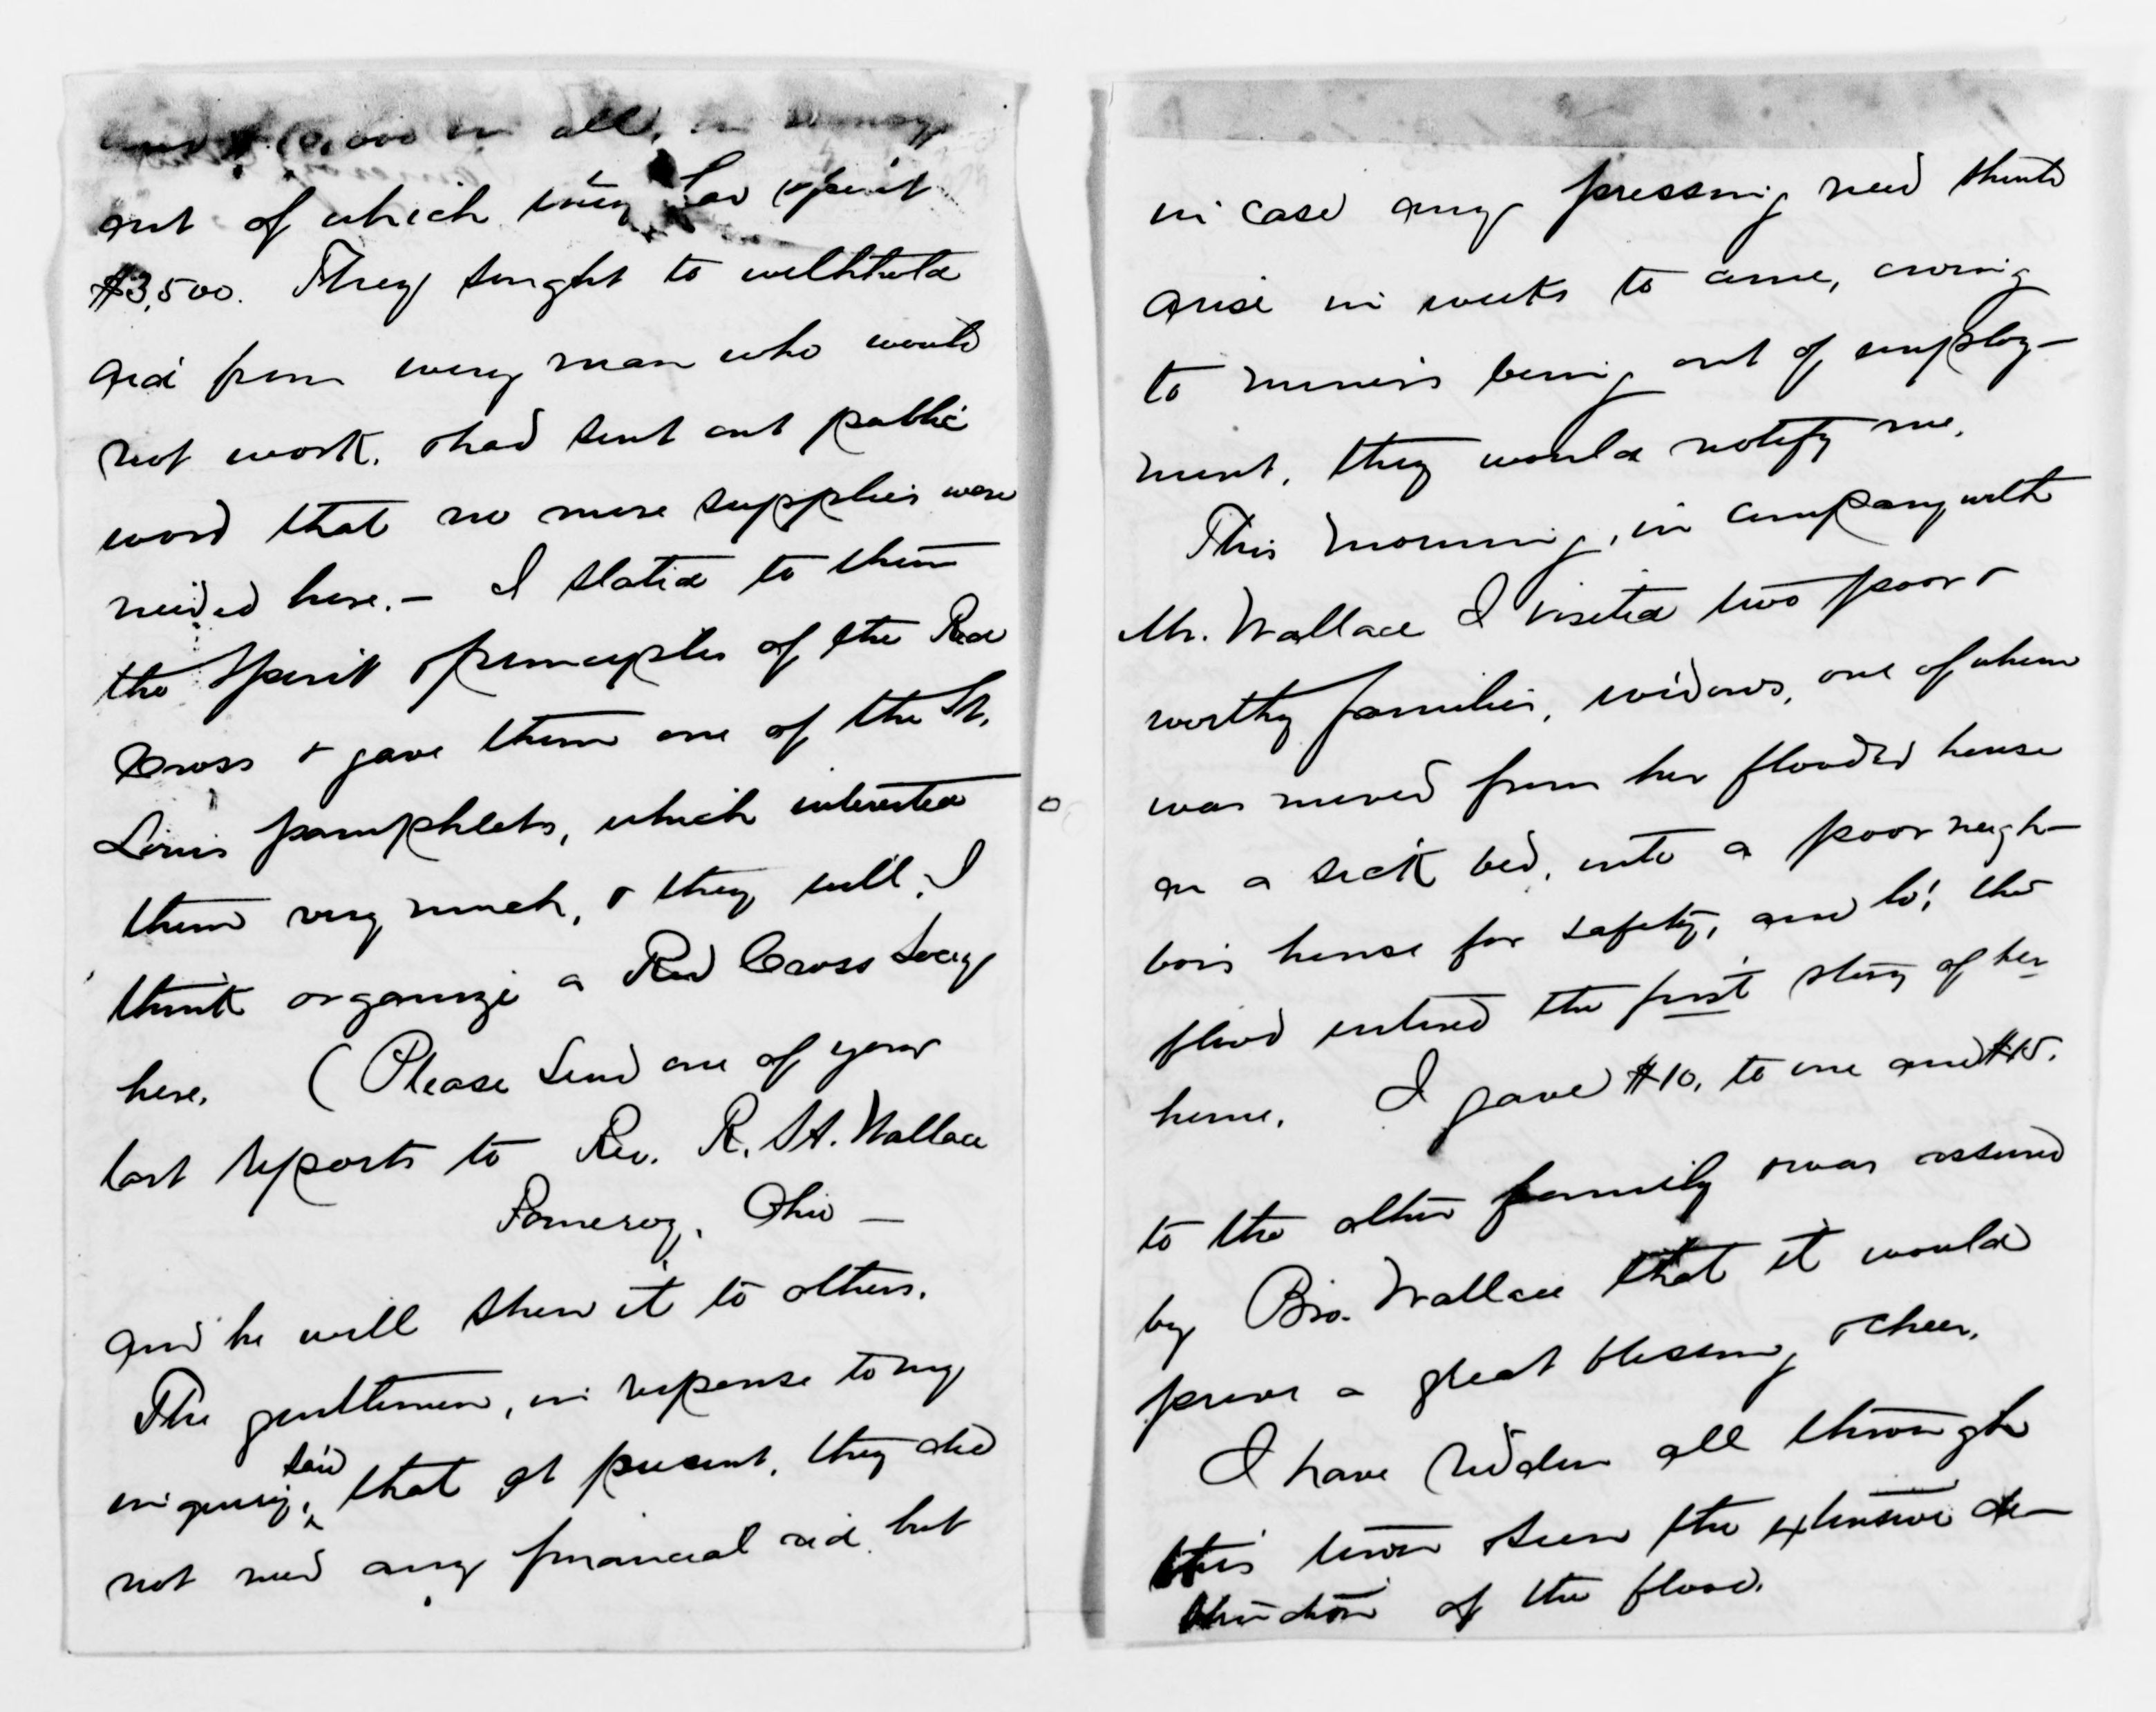 $10,000 in all, in money
out of which they had spent
$3,500. They sought to withhold
aid from every man who would
not work. & had sent out public
word that no more supplies were
needed here. – I stated to them
the spirit & principles of the Red
Cross & gave them one of the St.
Louis pamphlets, which interested
them very much, & they will, I
think organize a Red Cross Socy
here. (Please send one of your
last reports to Rev. R. Wallace
Pomeroy, Ohio –
and he will show it to others.
The gentlemen, in response to my
inquiry, said that at present, they did
not need any financial aid. but
in case any pressing need should
arise in weeks to come, owing
to miners being out of employ-
ment, they would notify me.
This morning, in company with
Mr. Wallace I visited two poor &
worthy families, widows, one of whom
was moved from her flooded house
on a sick bed, into a poor neigh-
bors house for safety, and lo! the
flood entered the first story of her
home. I gave $10. to one and $15.
to the other family & was assured
by Bro. Wallace that it would
prove a great blessing & cheer.
I have ridden all through
this town & seen the extensive de-
struction of the flood.